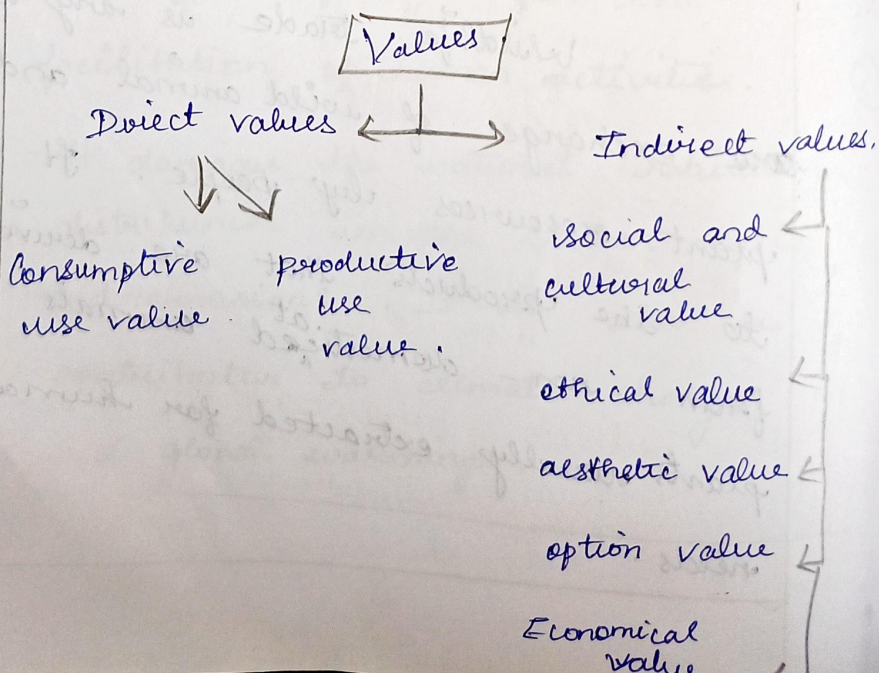 Values
Direct values
Indirect values.
Consumptive
use value
productive
use
value.
social and
cultural
value
ethical value
aesthetic value
option value
Economical
value